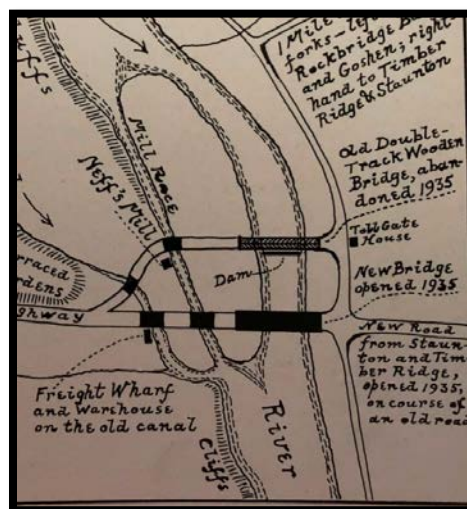 1 Mile
forks - left
Rockbridge Ba
and Goshen; right
hand to Timber
Ridge & Staunton
uffs
Mill Race
Neff's Mill
Old Double-
Track Wooden
Bridge, aban-
doned 1935
Toll Gate
House
Dam
New Bridge
opened 1935
erraced
rdens
ghway
New Road
from Staun-
ton and Tim-
ber Ridge,
opened 1935,
on course of
an old road
Freight Wharf
and Warehouse
on the old canal
Cliffs
River